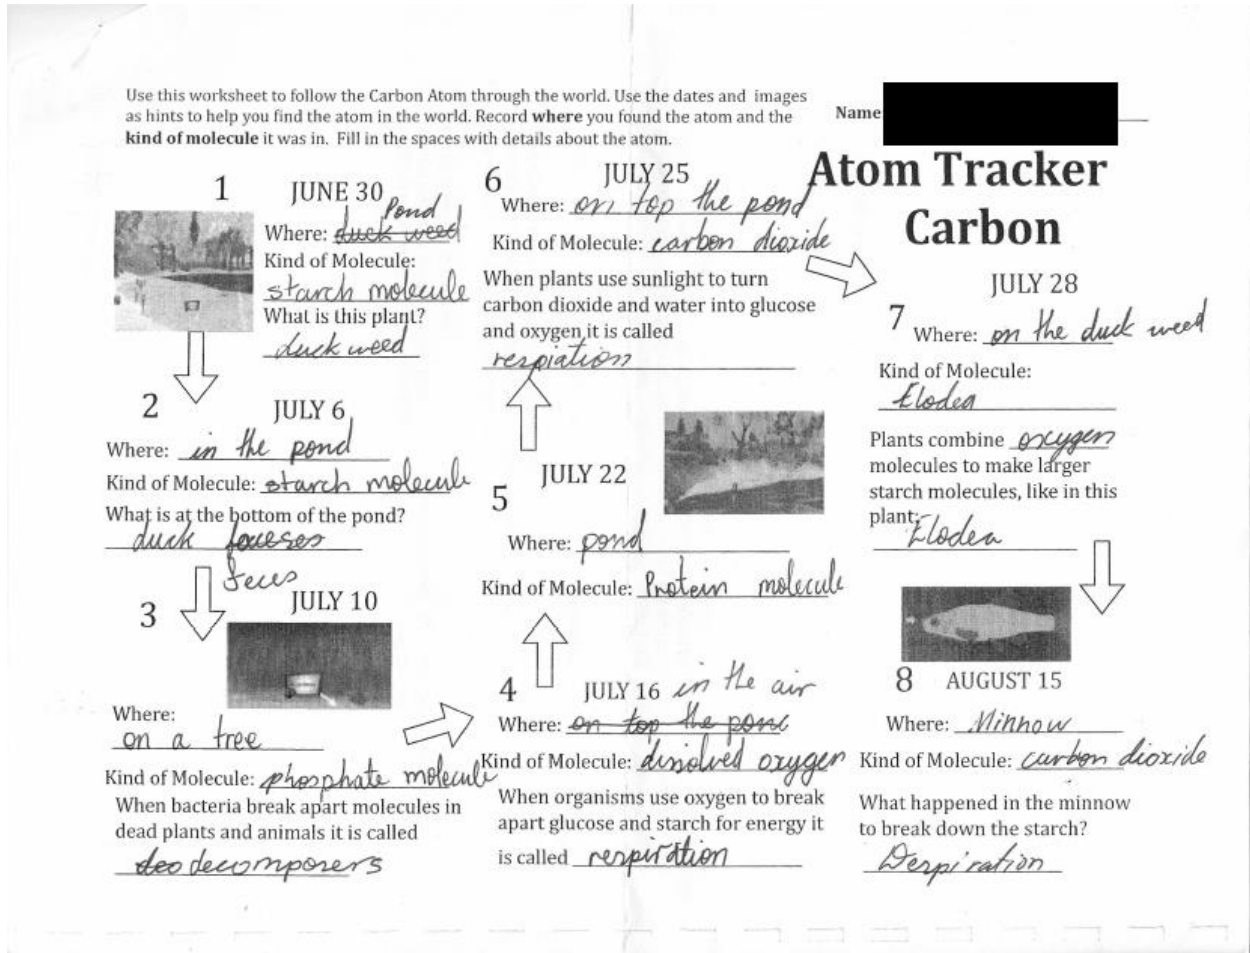 Use this worksheet to follow the Carbon Atom through the world. Use the dates and images
as hints to help you find the atom in the world. Record where you found the atom and the
kind of molecule it was in. Fill in the spaces with details about the atom.
Name
Atom Tracker
Carbon
1
JUNE 30
Pond
Where: duck weed
Kind of Molecule:
starch molecule
What is this plant?
duck weed
2
JULY 6
Where: in the pond
Kind of Molecule: starch molecule
What is at the bottom of the pond?
duck
feces
3
JULY 10
Where:
on a tree
Kind of Molecule: phosphate molecule
When bacteria break apart molecules in
dead plants and animals it is called
deo decomposers
4
JULY 16 in the air
Where: on top the pond
Kind of Molecule: dissolved oxygen
When organisms use oxygen to break
apart glucose and starch for energy it
is called respiration
5
JULY 22
Where: pond
Kind of Molecule: Protein molecule
6
JULY 25
Where: on top the pond
Kind of Molecule: carbon dioxide
When plants use sunlight to turn
carbon dioxide and water into glucose
and oxygen it is called
respiation
7
JULY 28
Where: on the duck weed
Kind of Molecule:
Elodea
Plants combine oxygen
molecules to make larger
starch molecules, like in this
plant:
Elodea
8
AUGUST 15
Where: Minnow
Kind of Molecule: carbon dioxide
What happened in the minnow
to break down the starch?
Derpiration